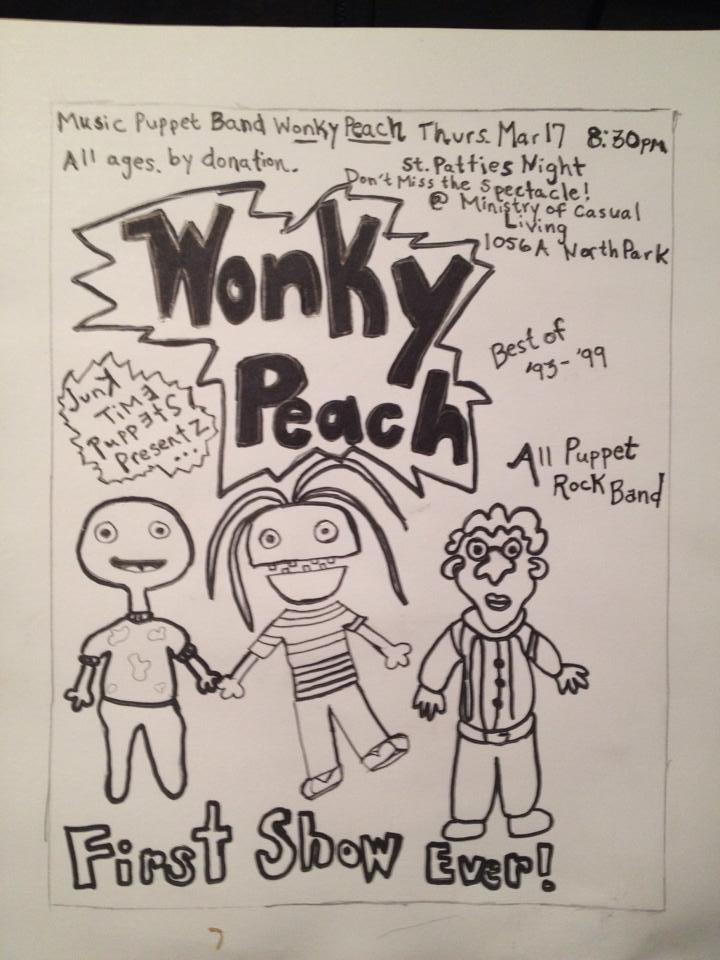 Music Puppet Band Wonky Peach Thurs. Mar 17 8:30pm
All ages. by donation.
St. Patties Night
Don't Miss the Spectacle!
@ Ministry of Casual
Living
1056A North Park
Wonky
Peach
Best of
'93-'99
Junk
TiME
PuppEtS
PresentZ
...
All Puppet
Rock Band
First Show Ever!